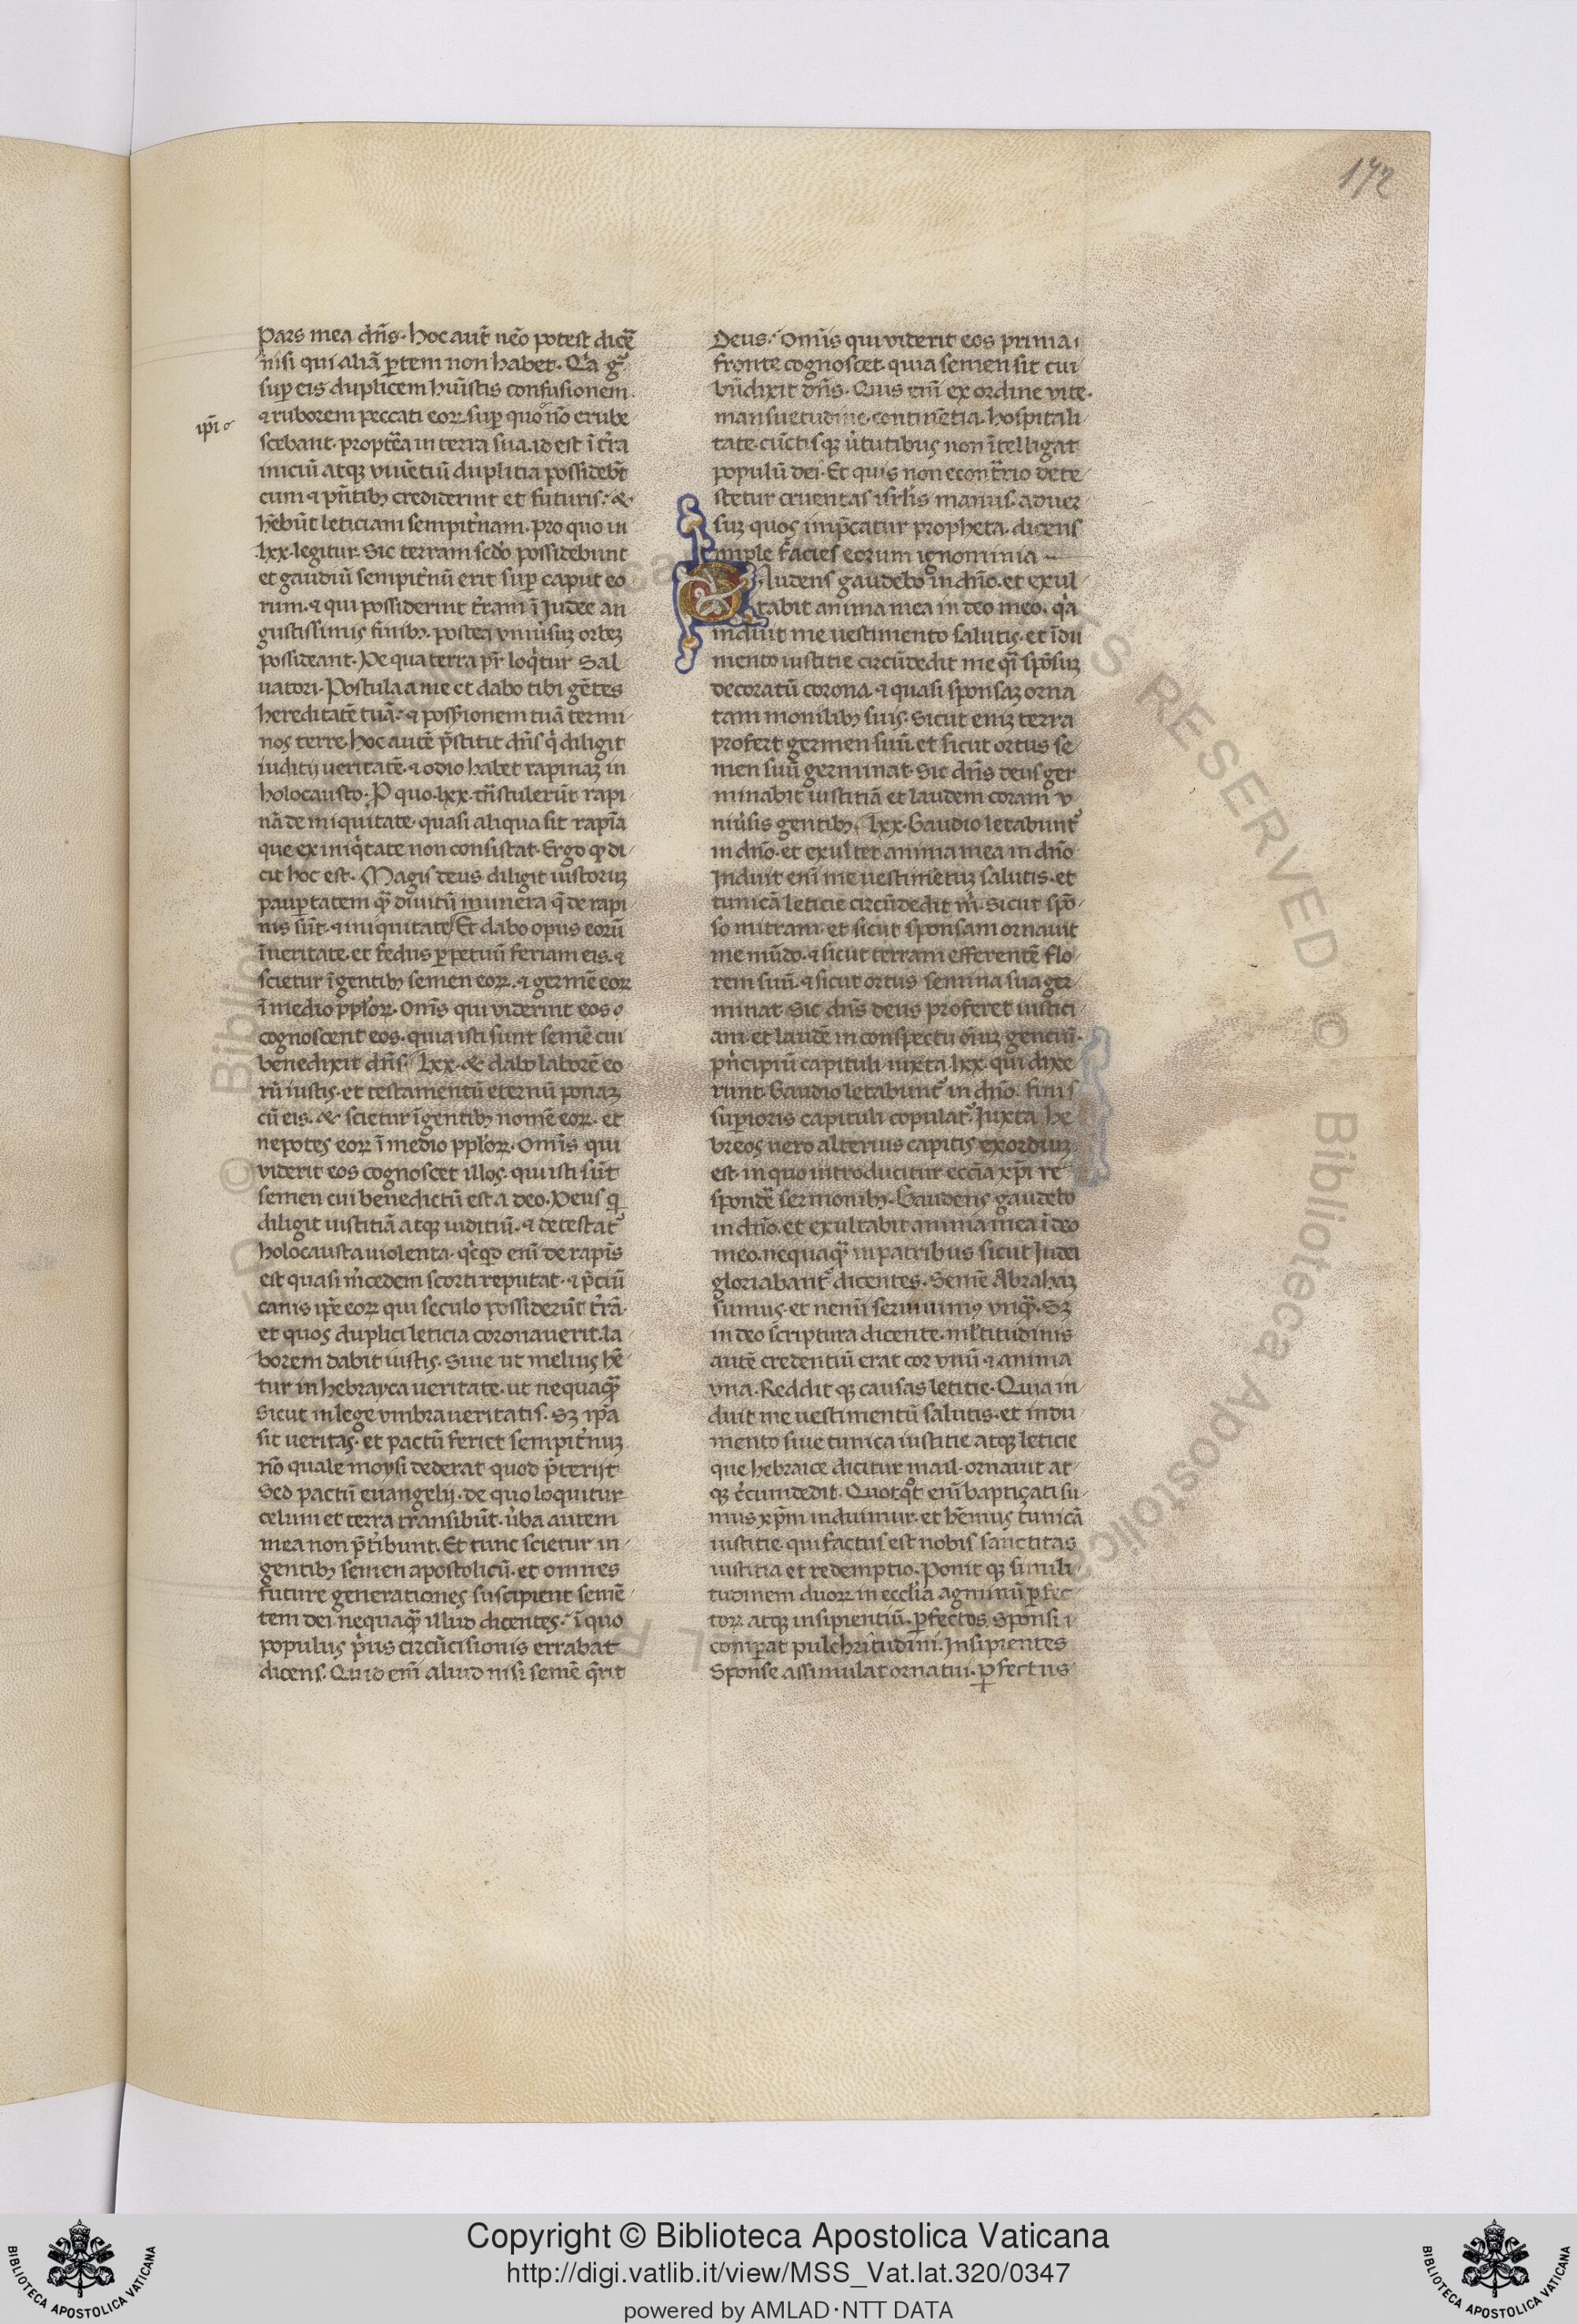 172
pars mea dñs. hoc aut̃ nẽo potest dicẽ
nisi qui aliã ꝑtem non habet. Q̃a g̃
suꝑ eis duplicem huĩstis confusionem.
⁊ ruborem peccati eoꝝ suꝑ quo nõ erube
ip̃i
scebant. proptẽa in terra sua. id est ĩ tr̃a
iniciũ atqꝫ viuẽtiũ duplitia possidebũt
cum ⁊ pñtibꝫ crediderint et futuris: &
hẽbũt leticiam sempit̃nam. pro quo in
.lxx. legitur. Sic terram scdo possidebunt
et gaudiũ sempit̃nũ erit suꝑ caput eo
rum. ⁊ qui possiderint tr̃am ĩ Judee an
gustissimis finibꝫ. postea vniũsuꝫ orbeꝫ
possideant. De qua terra pr̃ loq̃tur Sal
uatori. Postula a me et dabo tibi gẽtes
hereditatẽ tuã: ⁊ poss̃ionem tuã termi
nos terre. hoc autẽ p̃stitit dñs q̃ diligit
iuditij ueritatẽ. ⁊ odio habet rapinaꝫ in
holocausto. P quo .lxx. trãstulerũt rapi
nã de iniquitate. quasi aliqua sit rapĩa
que ex iniq̃tate non consistat. Ergo qđ di
cit hoc est. Magis deus diligit iustoruꝫ
pauꝑtatem qꝫ diuitũ munera q̃ de rapi
nis sũt. ⁊ iniquitate Et dabo opus eorũ
ĩ ueritate. et fedus ꝑpetuũ feriam eis. ⁊
scietur ĩ gentibꝫ semen eoꝝ. ⁊ germẽ eoꝝ
ĩ medio pp̃loꝝ. Omĩs qui viderint eos
cognoscent eos. quia isti sunt semẽ cui
benedixit dñs. lxx. & dabo laborẽ eo
rũ iustis. et testamentũ eternũ ponaꝫ
cũ eis. & scietur ĩ gentibꝫ nomẽ eoꝝ. et
nepotes eoꝝ ĩ medio pp̃loꝝ. Omĩs qui
viderit eos cognoscet illos. qui isti sũt
semen cui benedictũ est a deo. Deus q̃
diligit iustitiã atqꝫ iuditiũ. ⁊ detestat᷑
holocausta uiolenta. qͥcqͥd eni᷑ de rapĩs
est quasi m̃cedem scorti reputat. ⁊ p̃ciũ
canis ip̃e eoꝝ qui seculo possiderũt tr̃ã.
et quos duplici leticia coronauerit. la
borem dabit iustis. Siue ut melius hẽ
tur in hebrayca ueritate. ut nequaqꝫ
sicut in lege vmbra ueritatis. Sꝫ ip̃a
sit ueritas. et pactũ feriet sempit̃nuꝫ
nõ quale moysi dederat quod p̃terijt
Sed pactũ euangelij. de quo loquitur
celum et terra trãnsibũt. ũba autem
mea non p̃tibunt. Et tunc scietur in
gentibꝫ semen apostolicũ. et omnes
future generationes suscipient semẽ
tem dei nequaqꝫ illud dicentes: ĩ quo
populus p̃us circũcisionis errabat
dicens. Quid eni᷑ aliud nisi semẽ q̃rit
Deus: Omĩs qui viderit eos prima
fronte cognoscet quia semen sit cui
bñdixit dñs. Quis eni᷑ ex ordine vite.
mansuetudine. continẽtia. hospitali
tate. cũctisqꝫ ũtutibꝫ non ĩtelligat
populũ dei. Et quis non e contr̃rio dete
stetur cruentas isrl̃is manus. aduer
suꝫ quos imp̃catur propheta. dicens
imple facies eorum ignominia
Gaudens gaudebo in dño. et exul
tabit anima mea in deo meo. q̃a
induit me uestimento salutis. et ĩdu
mento iustitie circũdedit me q̃i spõsuꝫ
decoratũ corona. ⁊ quasi sponsaꝫ orna
tam monilibꝫ suis. Sicut eniꝫ terra
profert germen suũ. et sicut ortus se
men suũ germinat. Sic dñs deus ger
minabit iustitiã et laudem coram v
niũsis gentibꝫ. lxx. Gaudio letabunt᷑
in dño. et exultet anima mea in dño
Induit eni᷑ me uestimẽtuꝫ salutis. et
tunicã leticie circũdedit m̃. Sicut spõ
so mitram. et sicut sponsam ornauit
me mũdo. ⁊ sicut terram efferentẽ flo
rem suũ. ⁊ sicut ortus semina sua ger
minat. Sic dñs deus proferet iustici
am. et laudẽ in conspectu oĩuꝫ gentiũ.
pñcipiũ capituli iuxta lxx. qui dixe
runt. Gaudio letabunt᷑ in dño. finis
suꝑioris capituli copulat᷑. Juxta he
breos uero alterius capitis exordiuꝫ
est. in quo introducitur ecc̃ia xp̃i re
spondẽ sermonibꝫ. Gaudens gaudebo
in dño. et exultabit anima mea ĩ deo
meo. nequaqꝫ in patribus sicut Judei
gloriabant᷑ dicentes. Semẽ Abrahaꝫ
sumus. et nemi᷑ seruiuimꝰ vnqꝫ. Sꝫ
in deo scriptura dicente. ml̃titudinis
autẽ credentiũ erat cor vnũ ⁊ anima
vna. Redditqꝫ causas letitie. Quia in
duit me uestimentũ salutis. et indu
mento siue tunica iustitie atqꝫ leticie
que hebraice dicitur mail. ornauit at
qꝫ c̃cumdedit. Quotqͦt eni᷑ baptiçati su
mus xp̃m induimur. et hẽmus tunicã
iustitie. qui factus est nobis sanctitas
iustitia et redemptio. Ponitqꝫ simili
tudinem duoꝝ in ecclĩa agminũ ꝑfec
toꝝ atqꝫ insipientiũ. ꝑfectos Sponsi
comꝑat pulchritudini. Insipientes
Sponse assimulat ornatui. ꝑfectus
Copyright © Biblioteca Apostolica Vaticana
http://digi.vatlib.it/view/MSS_Vat.lat.320/0347
powered by AMLAD·NTT DATA
BIBLIOTECA APOSTOLICA VATICANA
BIBLIOTECA APOSTOLICA VATICANA